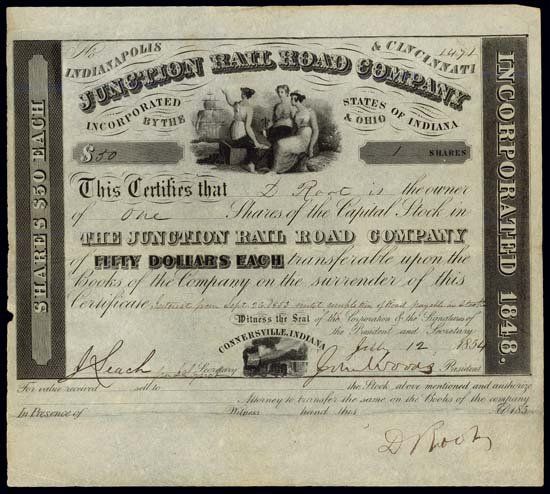 No 1471
INDIANAPOLIS & CINCINNATI
JUNCTION RAIL ROAD COMPANY
INCORPORATED STATES OF INDIANA
BY THE & OHIO
$50 1 SHARES
This Certifies that D Root is the owner
of One Shares of the Capital Stock in
THE JUNCTION RAIL ROAD COMPANY
of FIFTY DOLLARS EACH transferable upon the
Books of the Company on the surrender of this
Certificate Interest from Sept 1853 until completion of Road payable in Stock
Witness the Seal of the Corporation & the Signatures of
the President and Secretary
CONNERSVILLE, INDIANA
12 1854
J Leach Secretary John Woods President
For value received sell to the Stock above mentioned and authorize
Attorney to transfer the same on the Books of the company
In Presence of Witness hand this AD 185
D Root
SHARES $50 EACH
INCORPORATED 1848.